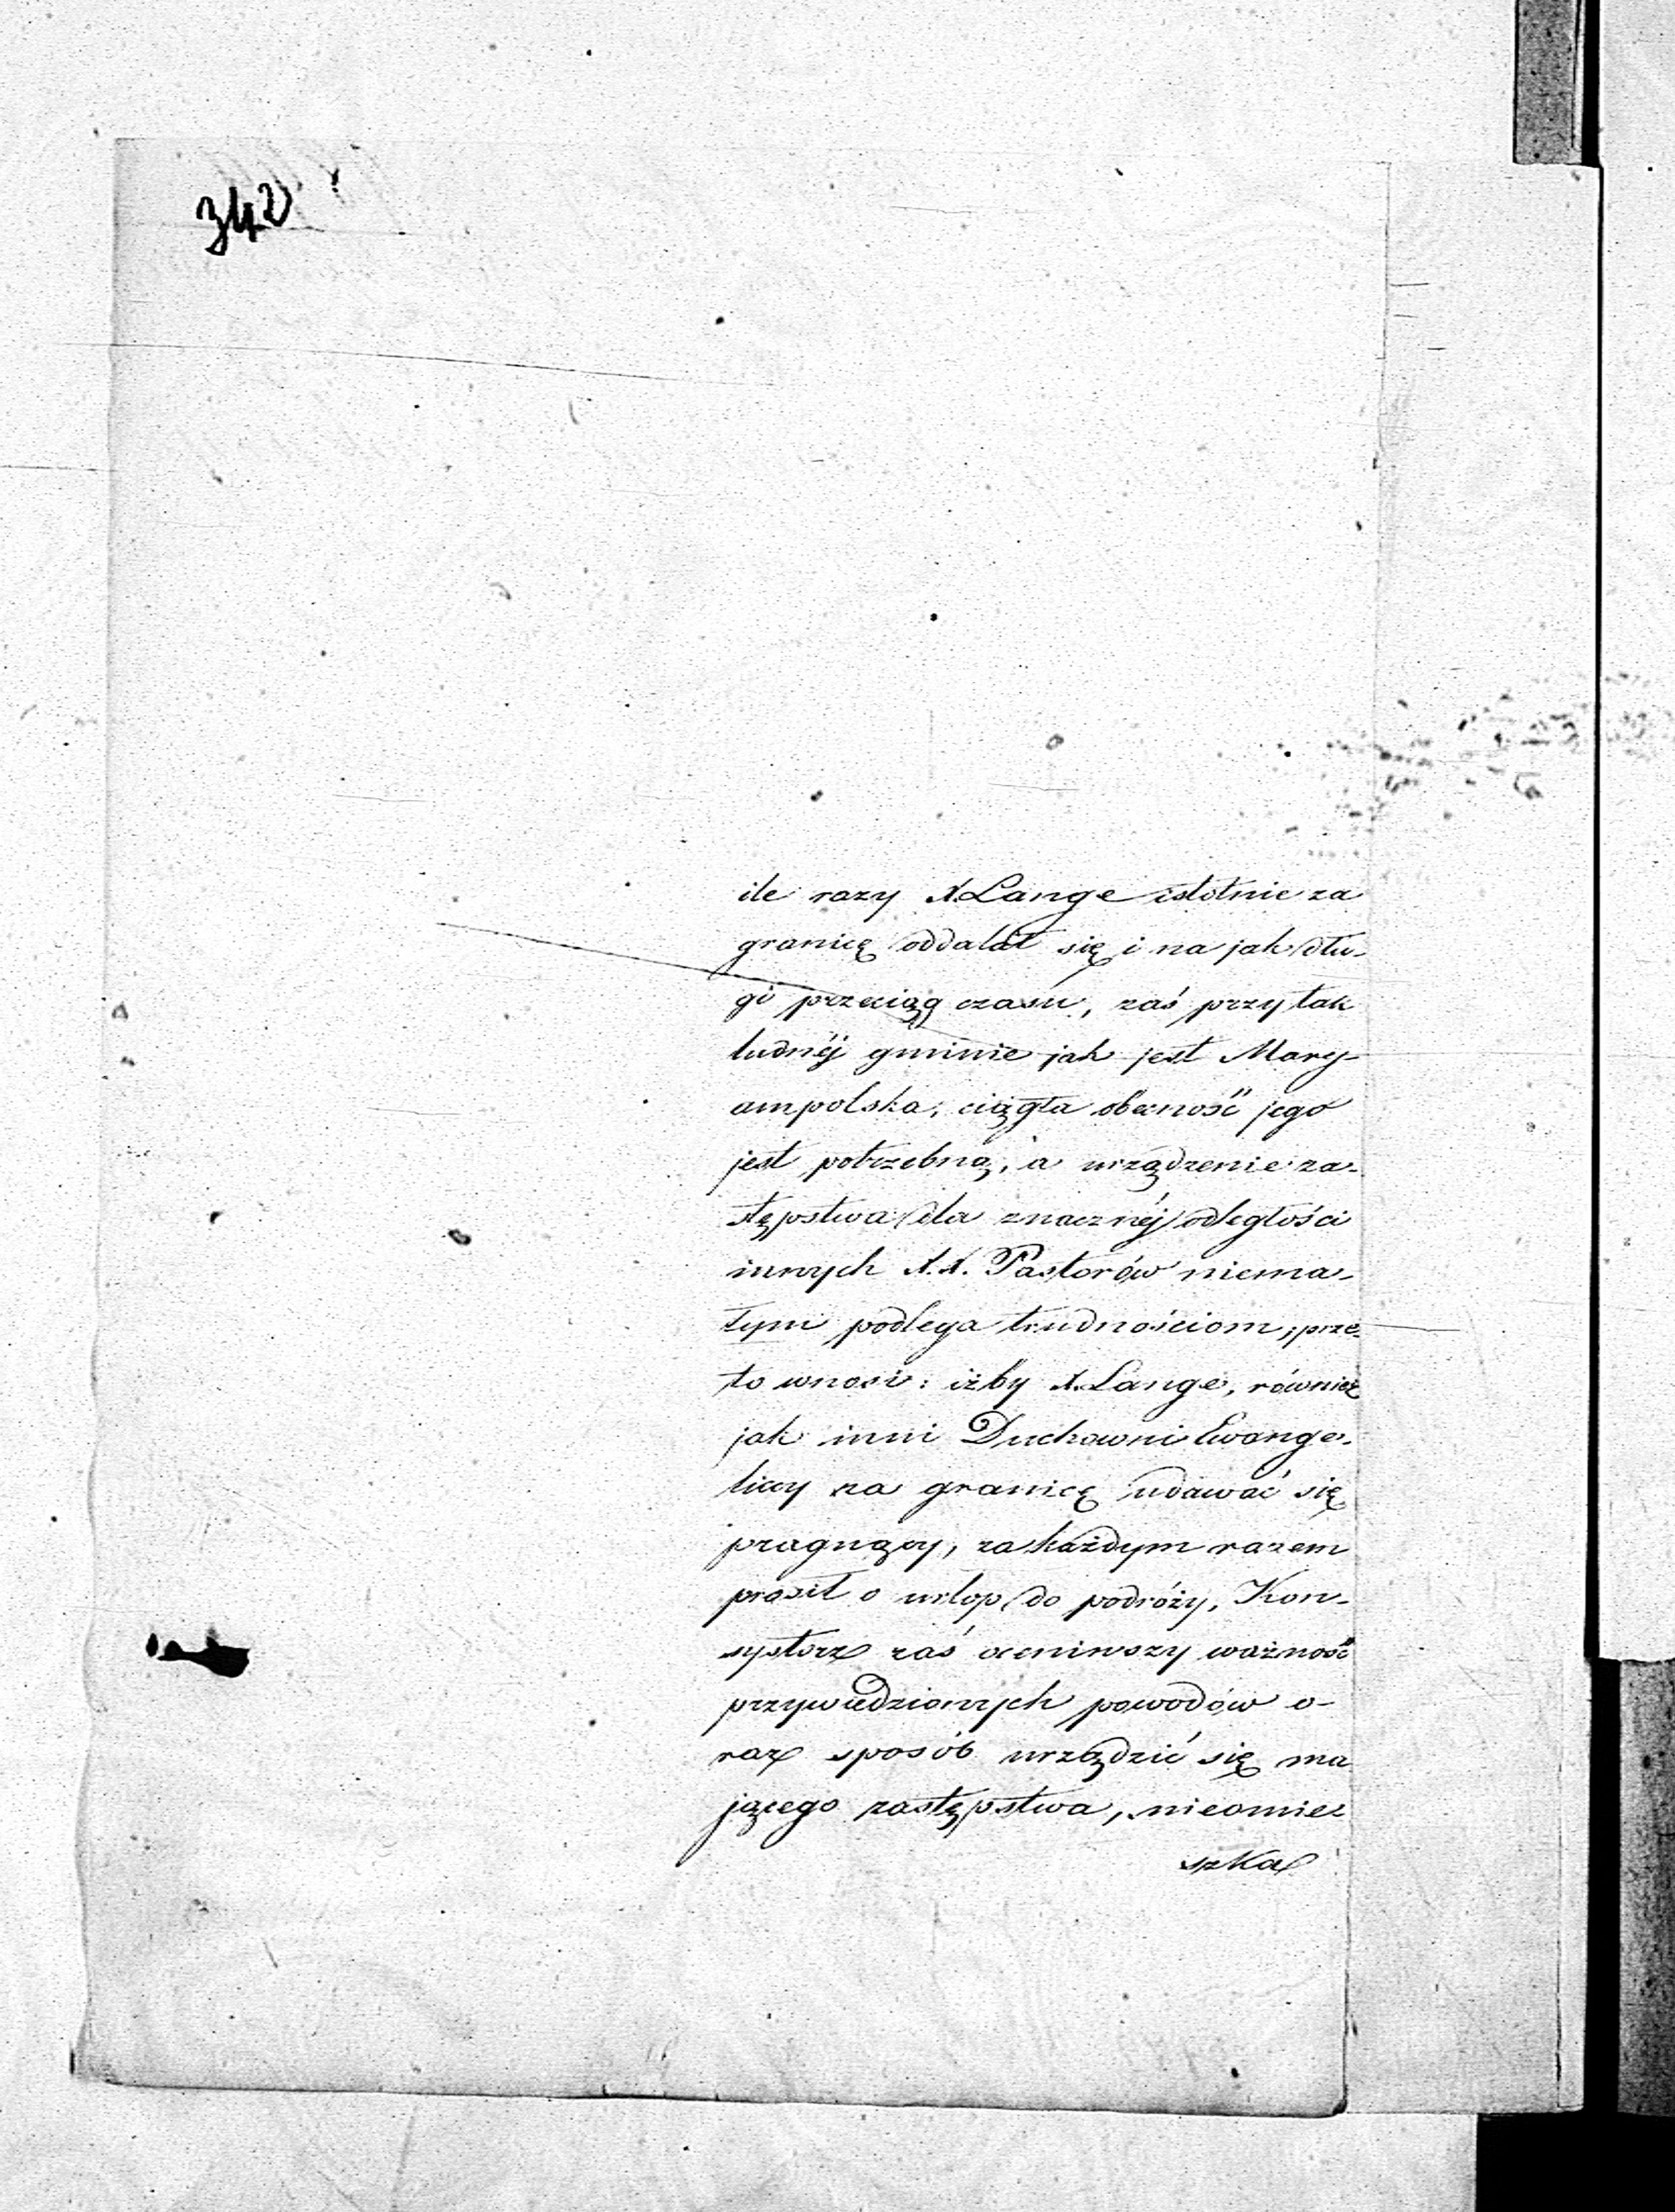 342
ile razy X. Lange istotnie za
granicę oddalał się i na jak dłu-
gi przeciąg czasu, zaś przy tak
ludnéj gminie jak jest Mary-
ampolska, ciągła obecność jego
jest potrzebną, a urządzenie za-
stępstwa dla znacznéj odległości
innych X.X. Pastorów niema-
łym podlega trudnościom; prze-
to wnosi: iżby X. Lange, również
jak inni Duchowni Ewange-
liccy za granicę udawać się
pragnący, za każdym razem
prosił o urlop do podróży, Kon-
systorz zaś oceniwszy ważność
przywiedzionych powodów o-
raz sposób urządzić się ma
jącego zastępstwa, nieomie-
szka